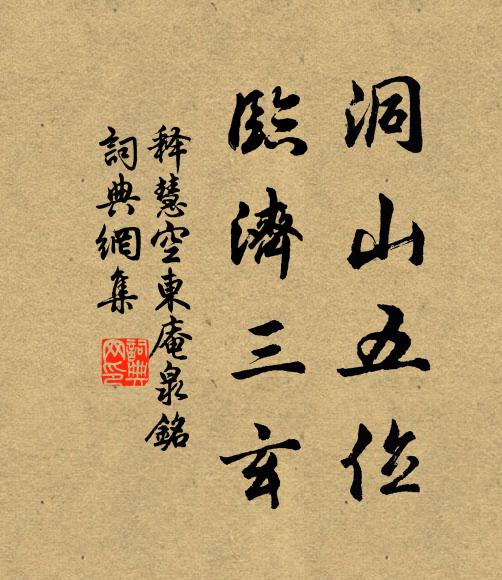 洞山五位
臨濟三玄
释慧空東庵泉銘
詞典網集
詞典網印